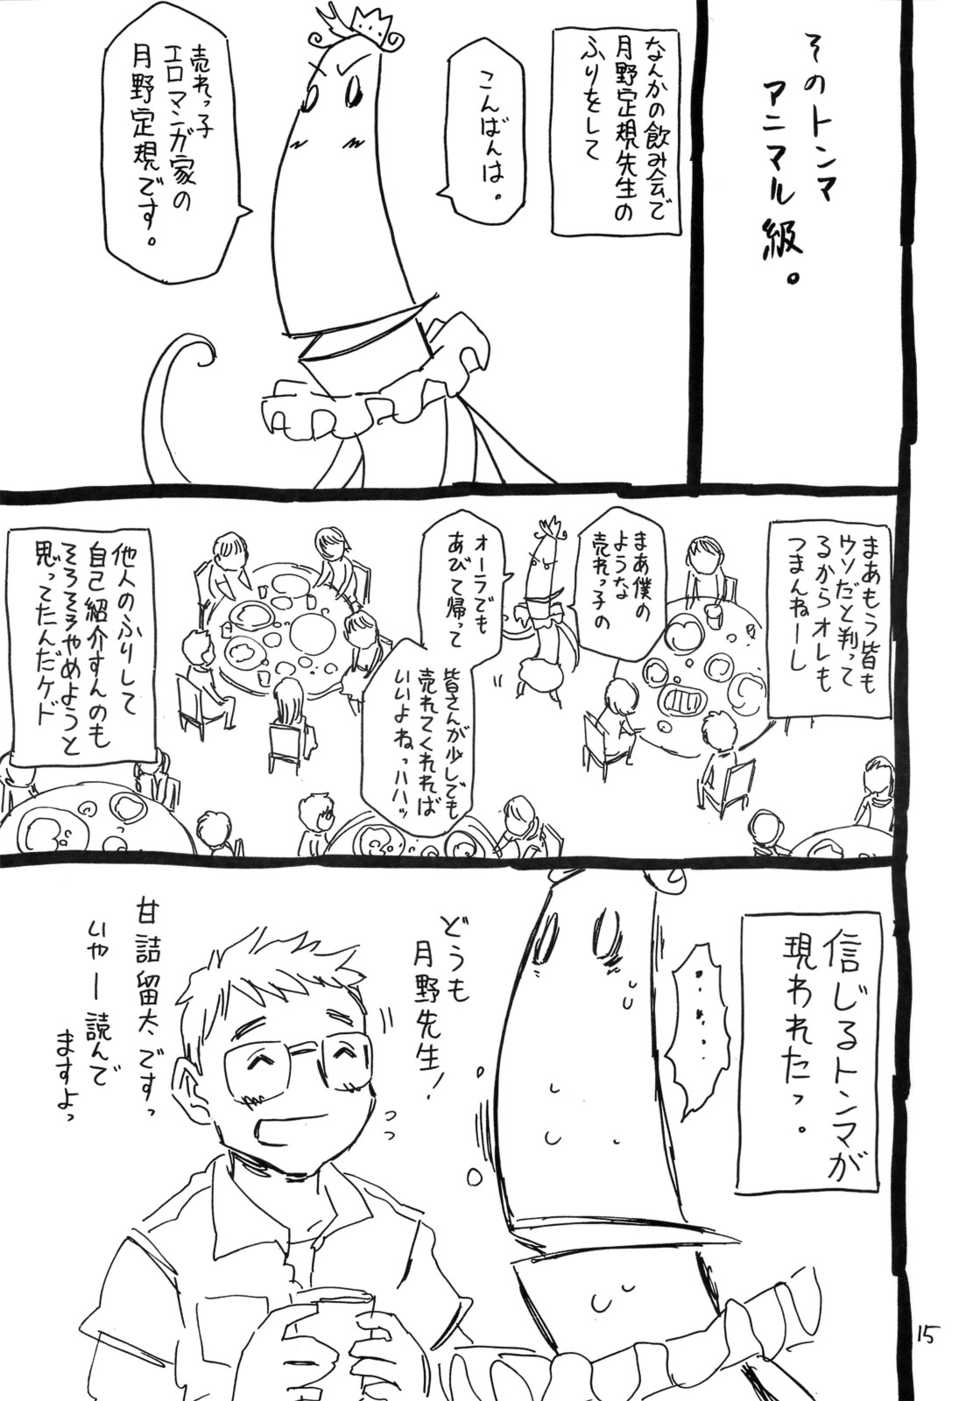 そのトンマ
アニマル級。
なんかの飲み会で
月野定規先生の
ふりをして
こんばんは。
売れっ子
エロマンガ家の
月野定規です。
まあもう皆も
ウソだと判って
るからオレも
つまんねーし
まあ僕の
ような
売れっ子の
オーラでも
あびて帰って
皆さんが少しでも
売れてくれれば
いいよねっハハッ
他人のふりして
自己紹介すんのも
そろそろやめようと
思ってたんだケド
信じるトンマが
現われたっ。
‥‥‥
どうも
月野先生!
甘詰留太ですっ
いやー読んで
ますよっ
15